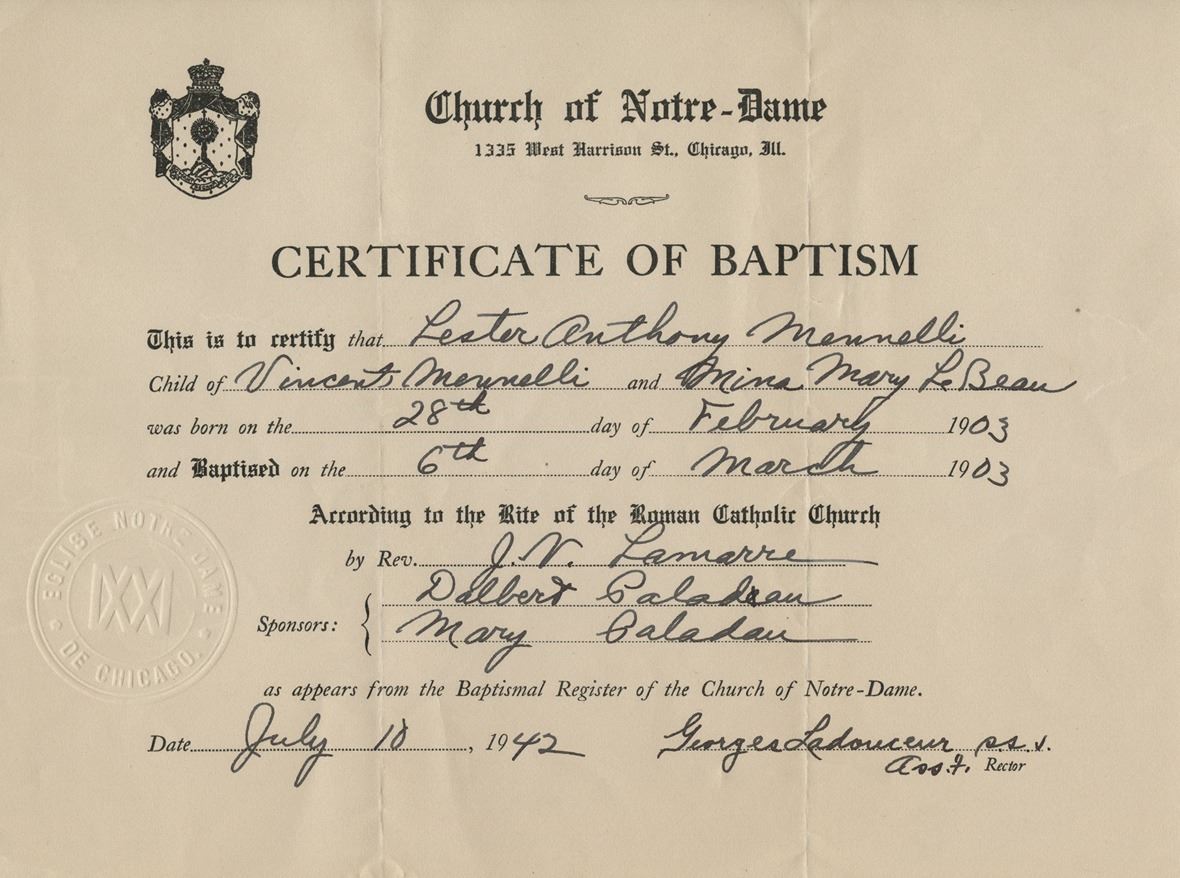 Church of Notre-Dame
1335 West Harrison St., Chicago, Ill.
CERTIFICATE OF BAPTISM
This is to certify that Lester Anthony Mennelli
Child of Vincent Mennelli and Mina Mary LeBeau
was born on the 28th day of February 1903
and Baptised on the 6th day of March 1903
According to the Rite of the Roman Catholic Church
by Rev. J. V. Lamarre
Dalbert
Sponsors:
Mary Paladau
as appears from the Baptismal Register of the Church of Notre-Dame.
Date July 10, 1942 Georges Ladouceur ss.s.
Ass't. Rector
EGLISE NOTRE DAME
DE CHICAGO.